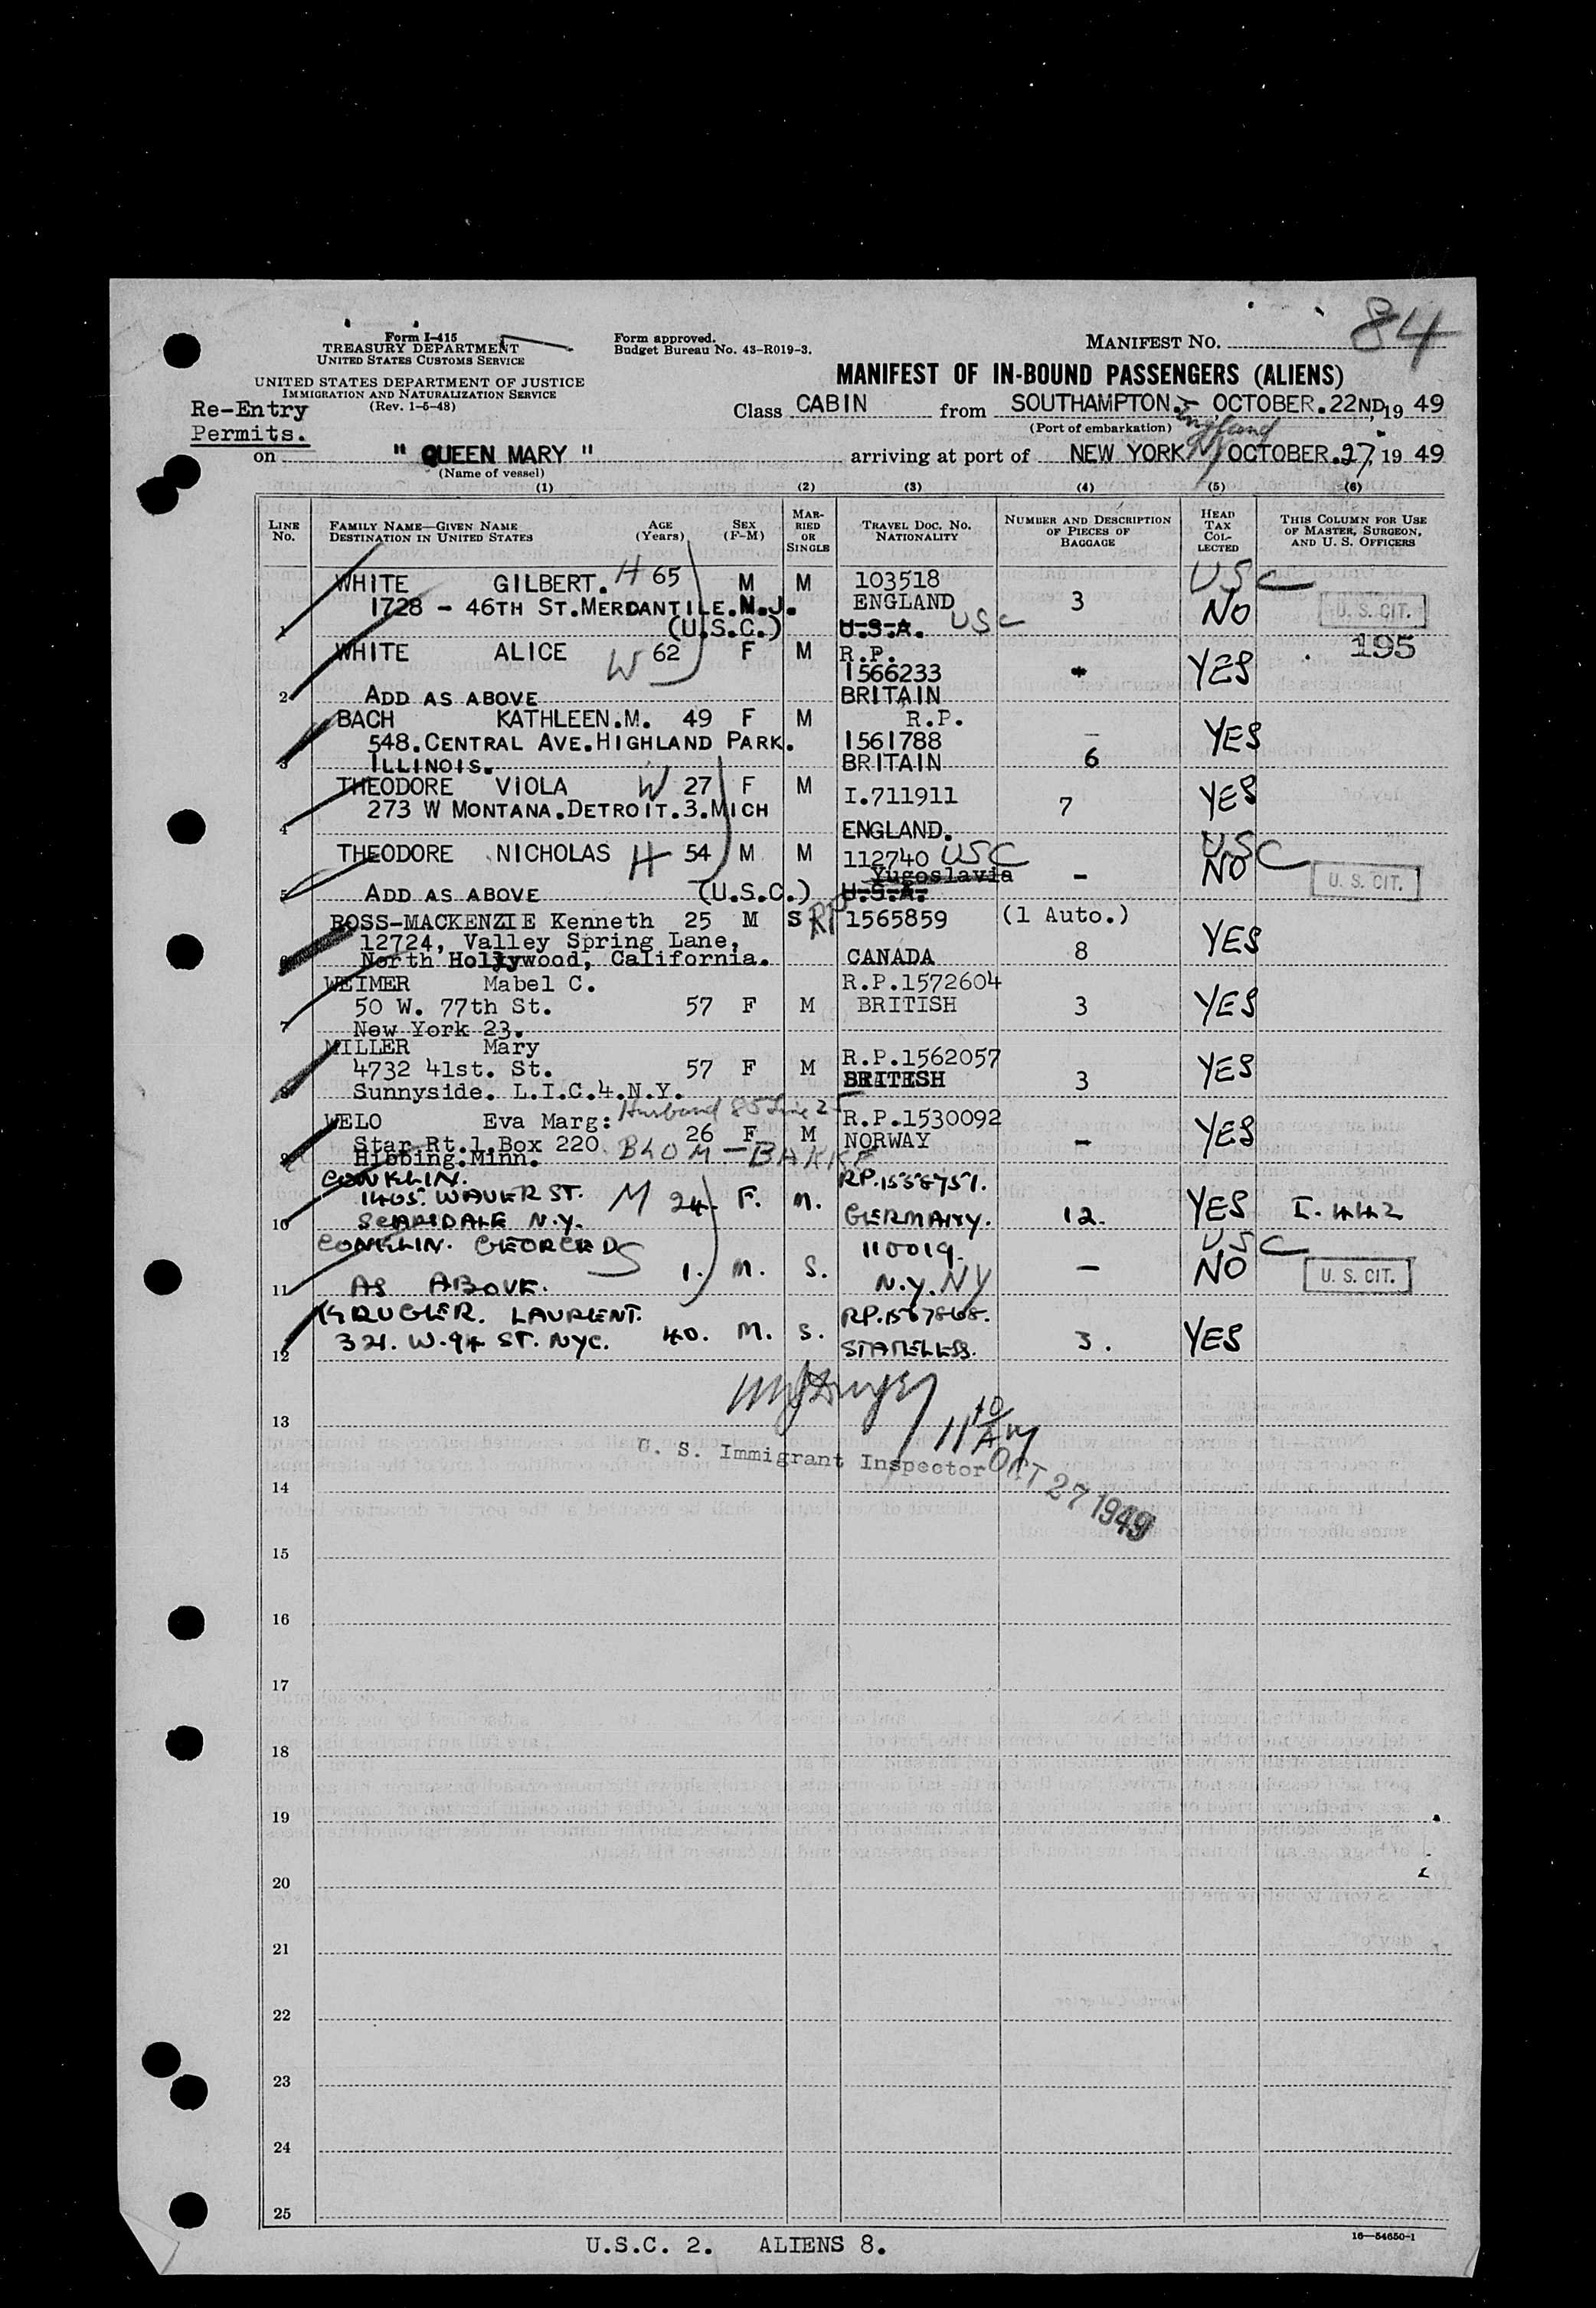 84
Form I-415
TREASURY DEPARTMENT
UNITED STATES CUSTOMS SERVICE
Form approved.
Budget Bureau No. 43-R019-3.
MANIFEST NO.
UNITED STATES DEPARTMENT OF JUSTICE
IMMIGRATION AND NATURALIZATION SERVICE
(Rev. 1-5-48)
MANIFEST OF IN-BOUND PASSENGERS (ALIENS)
Re-Entry
Permits.
Class CABIN from SOUTHAMPTON. England OCTOBER.22ND, 19 49
(Port of embarkation)
on " QUEEN MARY " arriving at port of NEW YORK NY OCTOBER.27, 19 49
(Name of vessel)
(1) (2) (3) (4) (5) (6)
LINE NO. FAMILY NAME—GIVEN NAME DESTINATION IN UNITED STATES AGE (Years) SEX (F-M) MARRIED OR SINGLE TRAVEL DOC. NO. NATIONALITY NUMBER AND DESCRIPTION OF PIECES OF BAGGAGE HEAD TAX COLLECTED THIS COLUMN FOR USE OF MASTER, SURGEON, AND U. S. OFFICERS
WHITE GILBERT. H 65 M M 103518 USC
1728 - 46TH ST.MERDANTILE.N.J. ENGLAND 3 NO U. S. CIT.
1 (U.S.C.) U.S.A. USC
195
WHITE ALICE W 62 F M R.P.
1566233 YES
2 ADD AS ABOVE BRITAIN
BACH KATHLEEN.M. 49 F M R.P.
548.CENTRAL AVE.HIGHLAND PARK. 1561788 YES
3 ILLINOIS. BRITAIN 6
THEODORE VIOLA W 27 F M I.711911 YES
273 W MONTANA.DETROIT.3.MICH 7
4 ENGLAND.
THEODORE NICHOLAS H 54 M M 112740 USC USC
Yugoslavia - NO U. S. CIT.
5 ADD AS ABOVE (U.S.C.) U.S.A.
ROSS-MACKENZIE Kenneth 25 M S RP 1565859 (1 Auto.)
12724, Valley Spring Lane, YES
6 North Hollywood, California. CANADA 8
WEIMER Mabel C. R.P.1572604
50 W. 77th St. 57 F M BRITISH 3 YES
7 New York 23.
MILLER Mary R.P.1562057
4732 41st. St. 57 F M BRITISH 3 YES
8 Sunnyside. L.I.C.4.N.Y.
WELO Eva Marg: Husband 85 Line 25 R.P.1530092
Star Rt.1 Box 220 26 F M NORWAY - YES
9 Hibbing.Minn. BLOM-BAKKE
CONKLIN. RP.1538751.
1405. WAVER ST. M 24 F. M. GERMANY. 12. YES I.442
10 SCARSDALE N.Y.
CONKLIN. GEORGE D S 110019. USC
11 AS ABOVE. 1. M. S. N.Y. NY - NO U. S. CIT.
KRUGLER. LAURENT. RP.1567868.
12 321. W.94 ST. NYC. 40. M. S. STATELESS. 3. YES
13
11 10 AM
U. S. Immigrant Inspector OCT 27 1949
14
15
16
17
18
19
20
21
22
23
24
25
U.S.C. 2. ALIENS 8.
16—54650-1